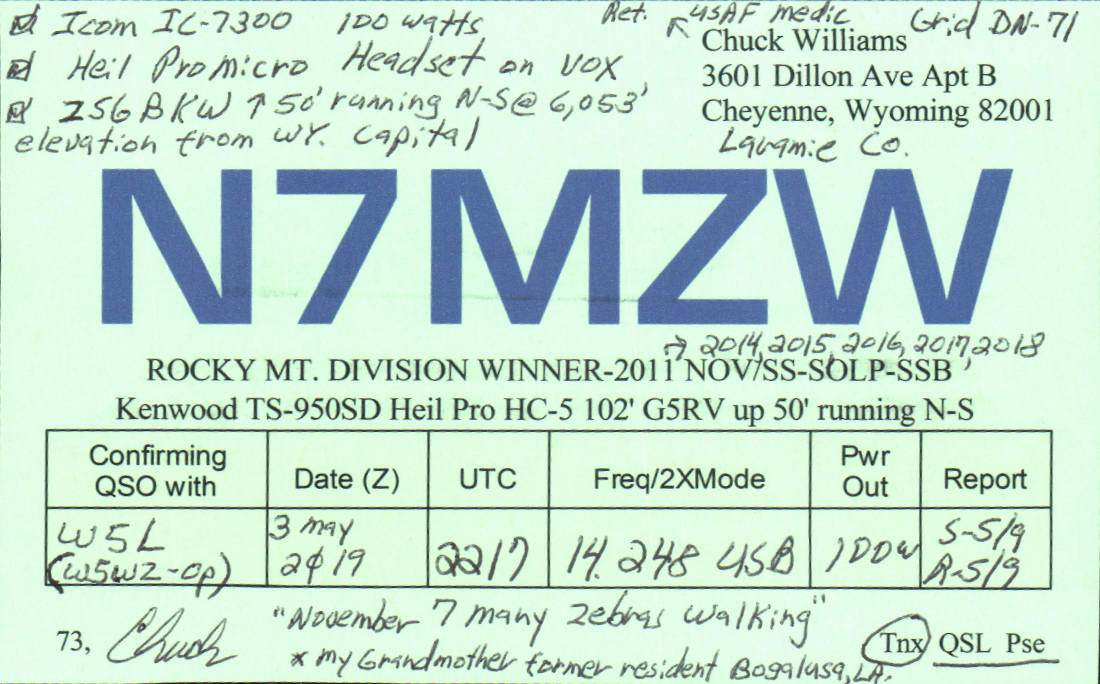 ☑ Icom IC-7300 100 watts
☑ Heil Pro micro Headset on VOX
☑ 256 BKW ↑ 50' running N-S @ 6,053'
elevation from WY. Capital
Ret. USAF medic
Grid DN-71
Chuck Williams
3601 Dillon Ave Apt B
Cheyenne, Wyoming 82001
Laramie Co.
N7MZW
→ 2014, 2015, 2016, 2017, 2018
ROCKY MT. DIVISION WINNER-2011 NOV/SS-SOLP-SSB
Kenwood TS-950SD Heil Pro HC-5 102' G5RV up 50' running N-S
Confirming QSO with Date (Z) UTC Freq/2XMode Pwr Out Report
W5L (W5WZ-op) 3 May 2Ø19 2217 14.248 USB 100w S-5/9 R-5/9
"November 7 many zebras walking"
73, Chuck
* my Grandmother former resident Bogalusa, LA.
Tnx QSL Pse